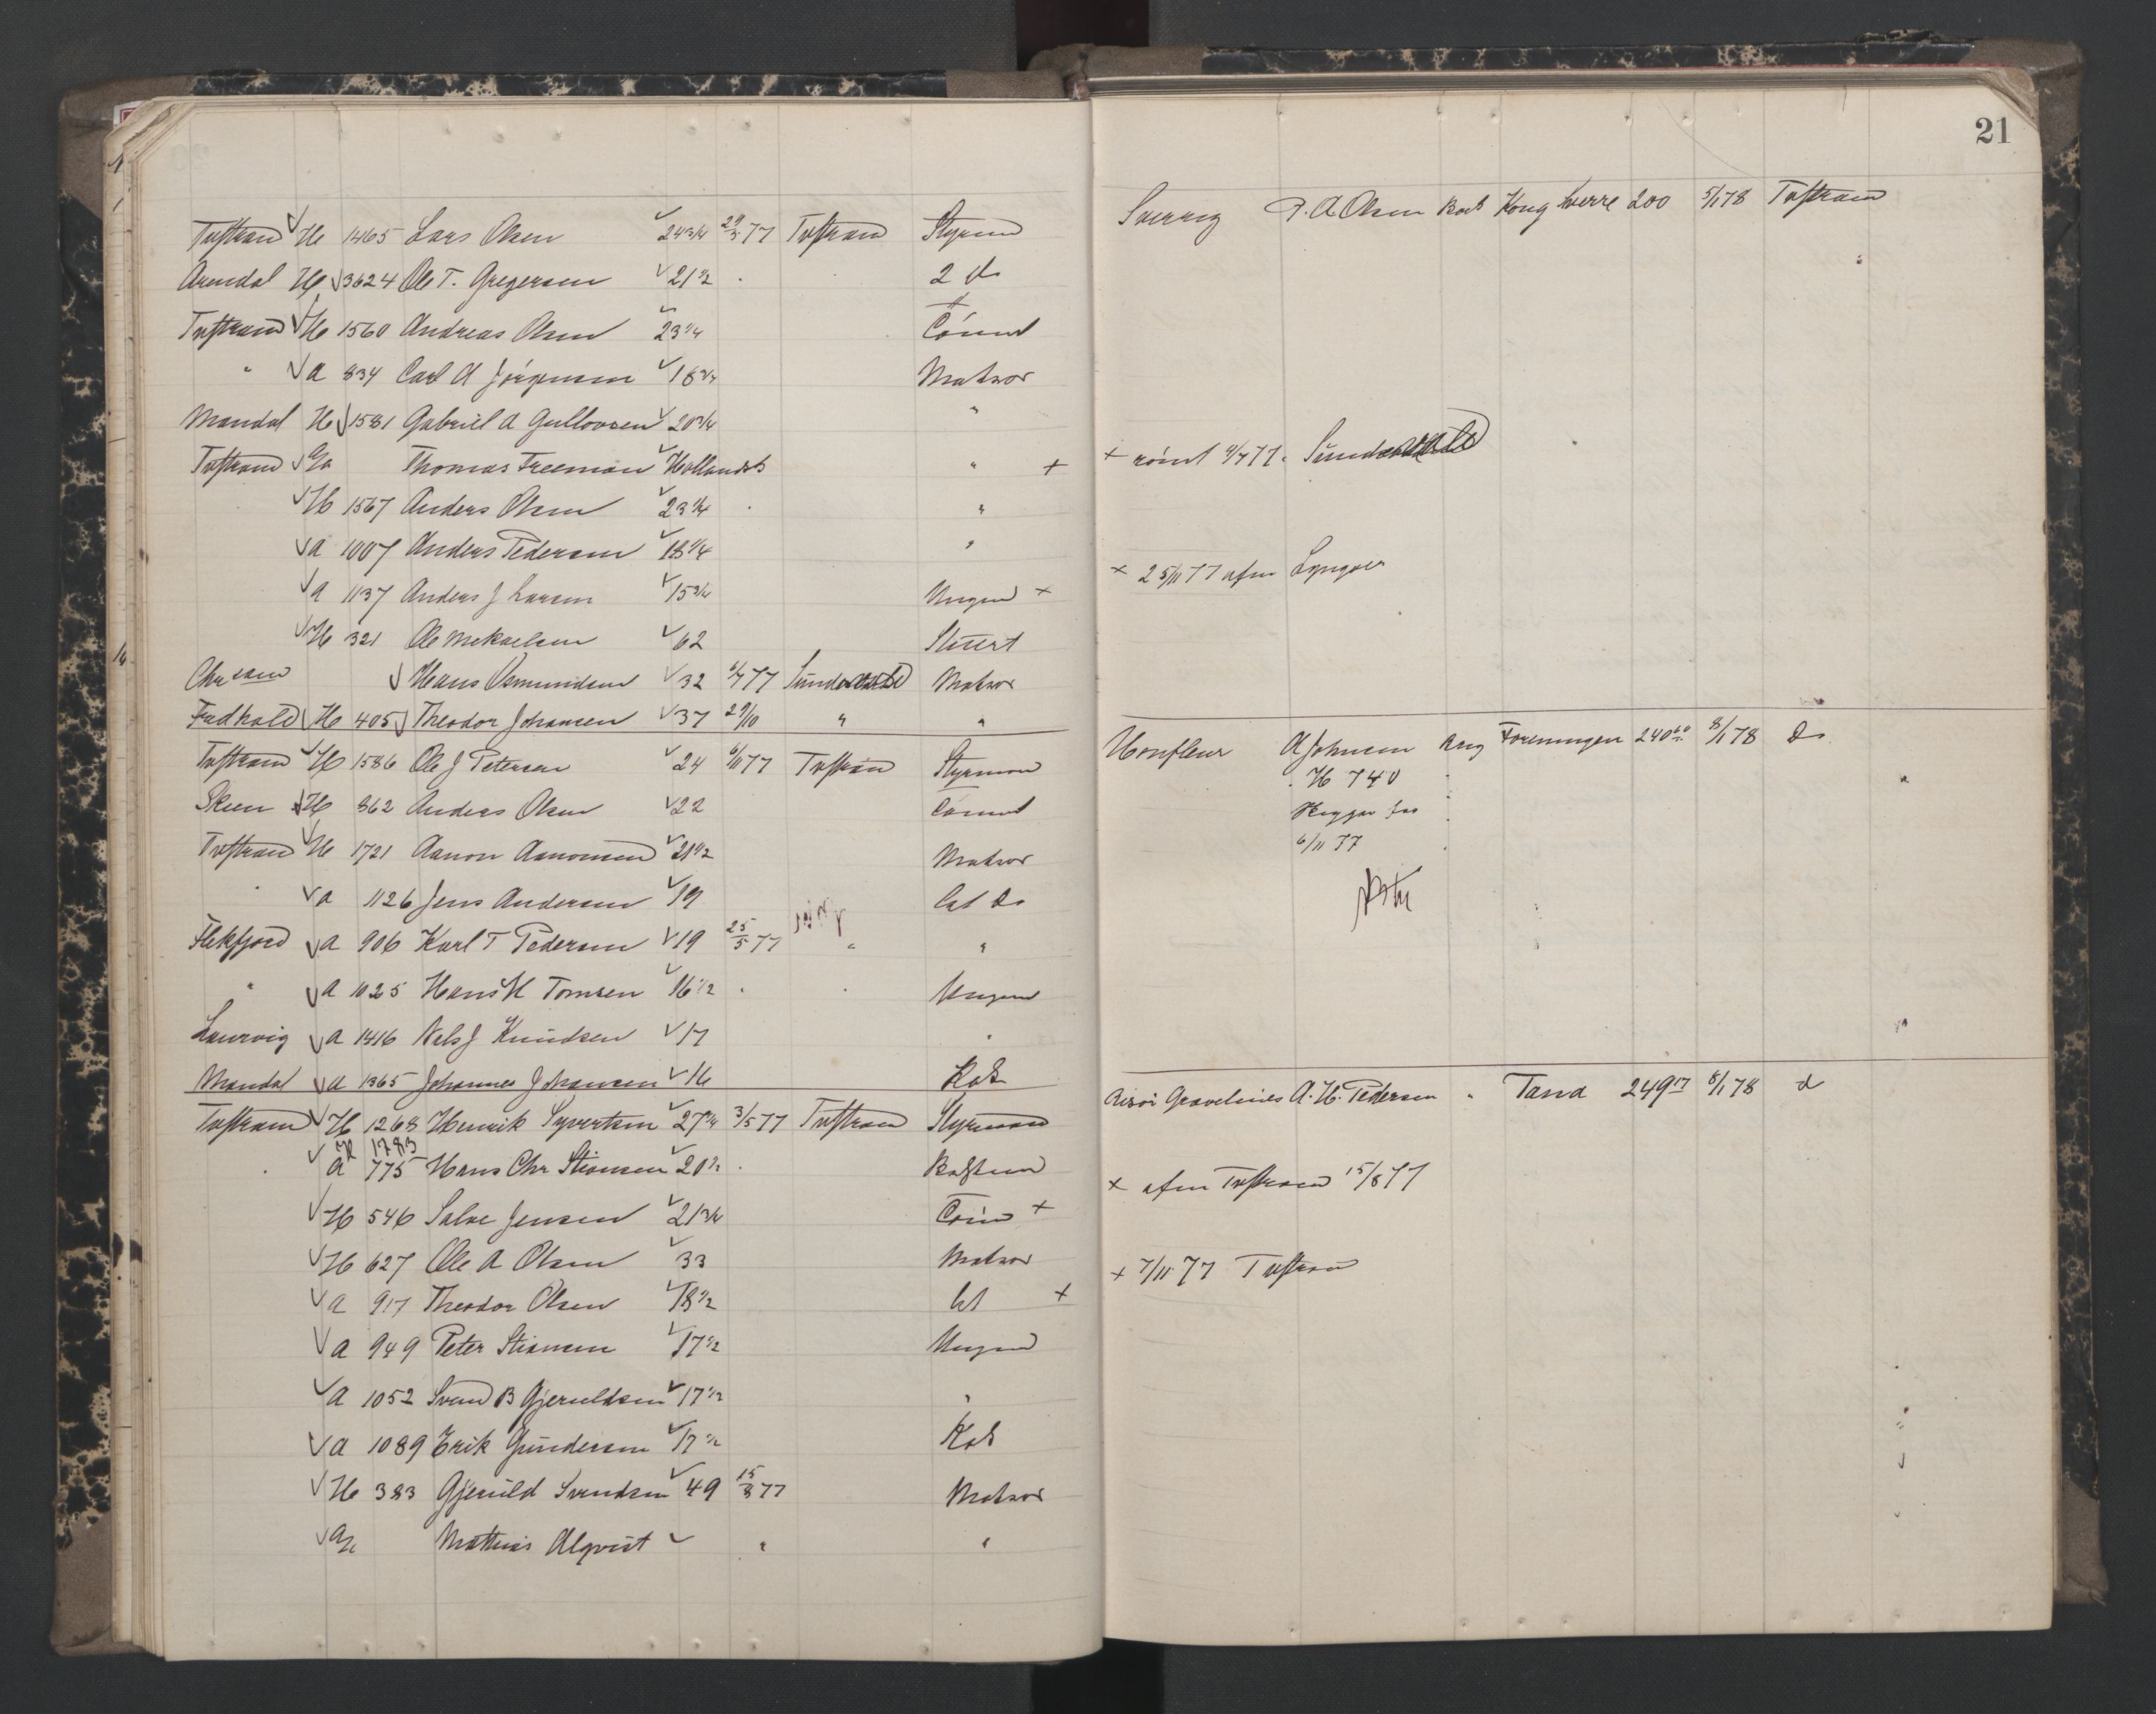 21
Tvstrand H 1465 Lars Olsen 24 3/4 29/3 77 Tvstrand Styrmd
Sverrig P. A. Olsen Bark Kong Sverre 200 5/1 78 Tvstrand
Arendal H 3624 Ole T. Gregersen 21 1/2 2 do
Tvstrand H 1560 Andreas Olsen 23 1/4 Tömmd
" a 834 Carl A Jörgensen 18 3/4 Matros
Mandal H 1581 Gabriel A Gullovsen 20 3/4 "
Tvstrand Thomas Freeman Hollandsk " +
+ römt 4/7 77
H 1567 Anders Olsen 23 3/4 "
a 1007 Anders Pedersen 18 1/4 "
+ 25/11 77 afm Lyngøer
a 1137 Anders J Larsen 15 3/4 Ungmd +
H 321 Ole Mekaelsen 62 Stuert
Chr sand Hans Osmundsen 32 6/7 77 Matros
H 405 Theodor Johansen 37 29/10 " "
Tvstrand H 1586 Ole J Petersen 24 6/11 77 Tvstran Styrmand
Honfleur A Johnsen Brig Foreningen 240 60 8/1 78 Do
H 740
Skien H 862 Anders Olsen 22 Tömmd
Hyggen fra
Tvstrand H 1721 Aanon Aanonsen 21 1/2 Matros
6/11 77
" a 1126 Jens Andersen 19 Let Do
Flekfjord a 906 Karl T Pedersen 19 25/5 77 " "
" a 1025 Hans H Tomsen 16 1/2 Ungmd
Laurvig a 1416 Nels J Knudsen 17 "
Mandal a 1365 Johannes Johansen 16 Kok
Tvstrand H 1268 Henrik Syvertsen 27 3/4 3/5 77 Tvstrand Styrmand
Risör Gravelines A. H. Pedersen " Tana 249 17 8/1 78 d
H 1783
a 775 Hans Chr Stiansen 20 1/2
+ afm Tvstrand 15/8 77
H 546 Salve Jensen 21 3/4 Töm +
H 627 Ole A Olsen 33 Matros
+ 7/11 77 Tvstran
a 917 Theodor Olsen 18 1/2 Let +
a 949 Peter Stiansen 17 1/2 Ungmd
a 1052 Svend B Gjeruldsen 17 1/2 "
a 1089 Erik Gundersen 17 1/2 Kok
H 383 Gjeruld Svendsen 49 15/8 77 Matros
Mathias Alqvist " "